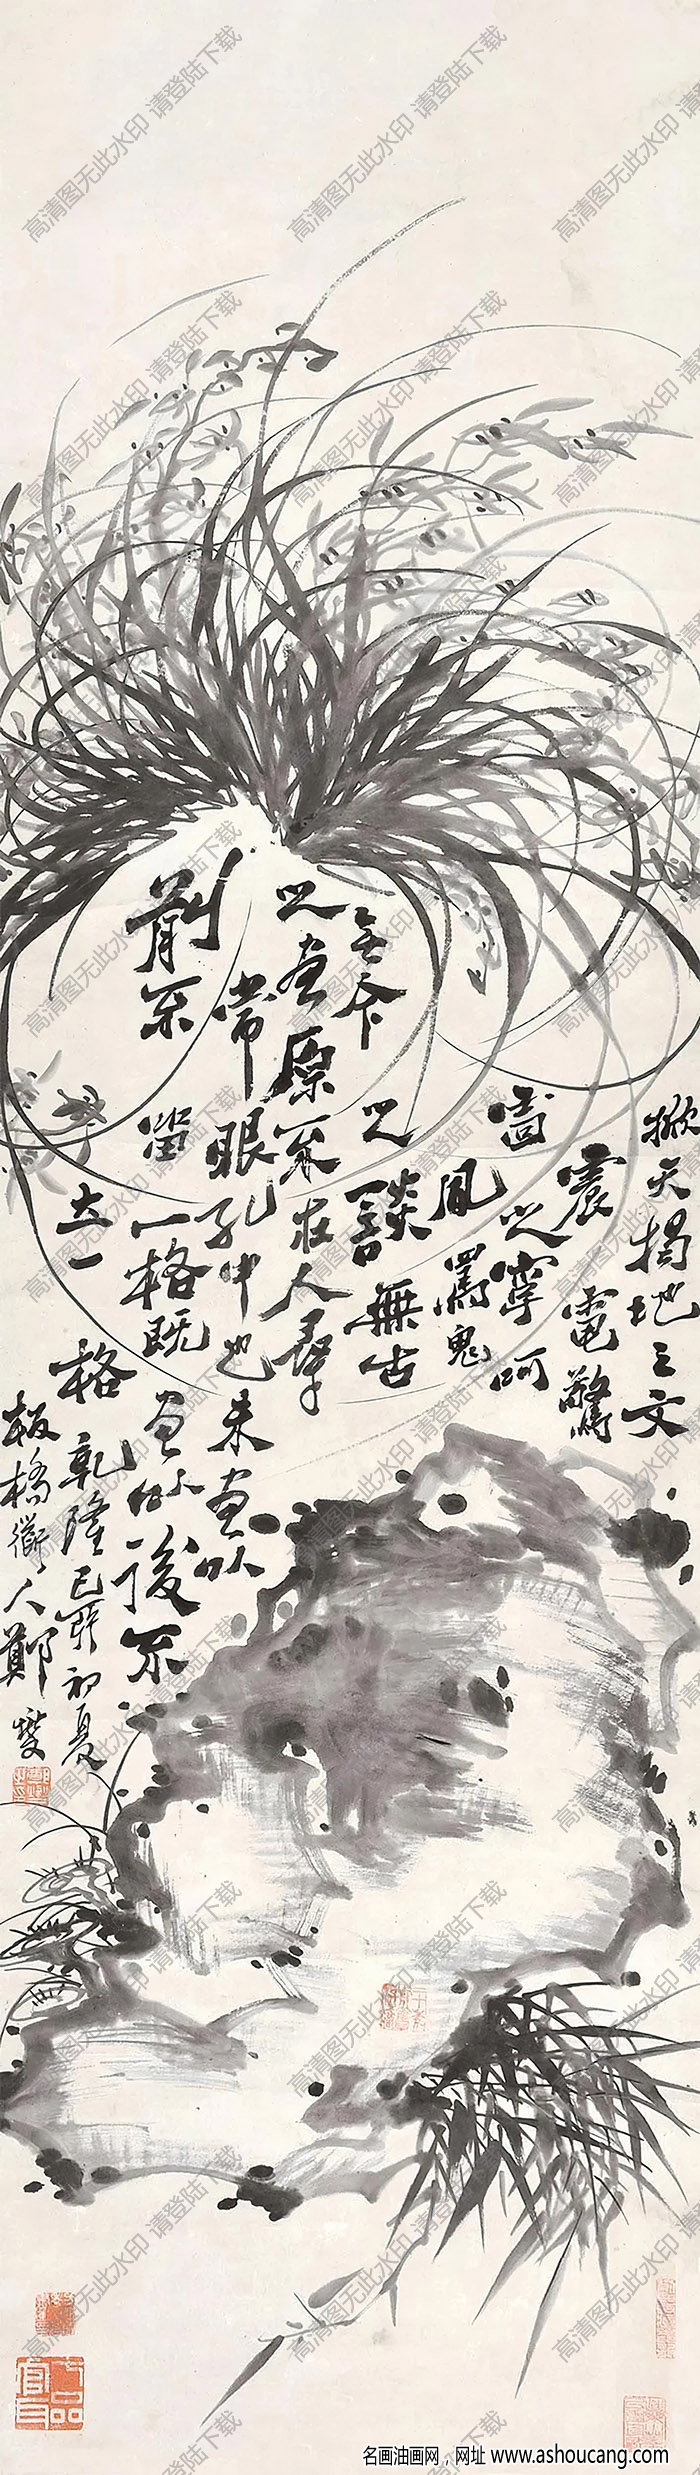 掀天揭地之文
震電驚
雷之字呵
罵鬼
之談無古
无今
之畫原不在人
常眼孔中也未畫以
前不
留一格既畫以後不
立一格
乾隆己卯初夏
板橋道人鄭燮
七品官耳
高清图无此水印 请登陆下载
名画油画网，网址 www.ashoucang.com